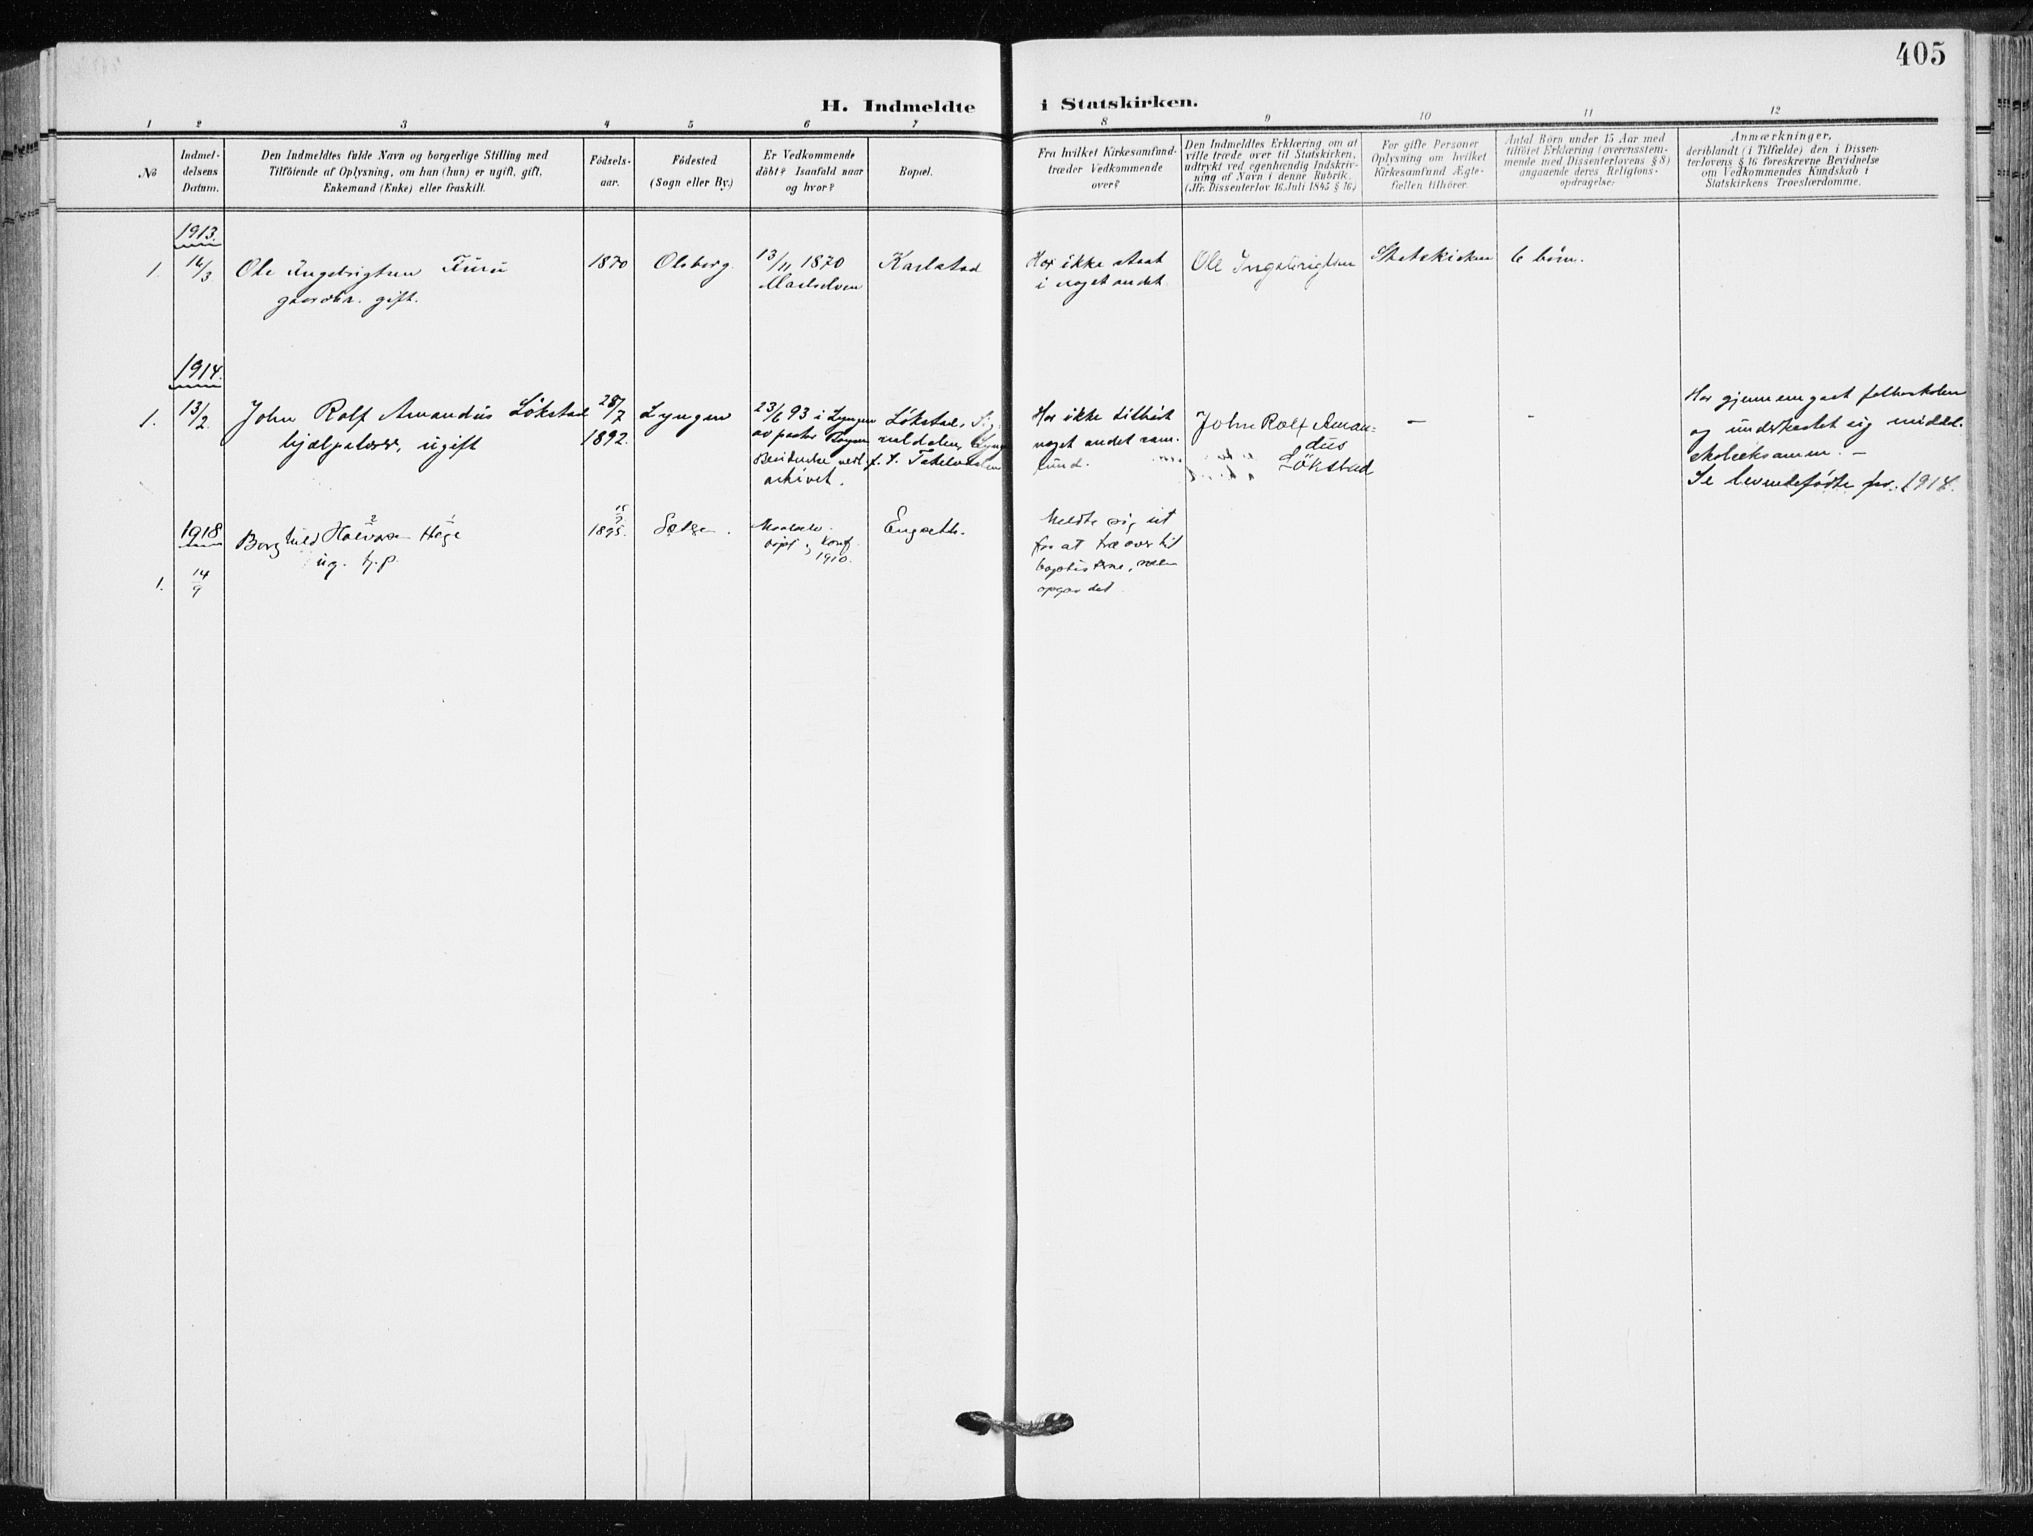 405
H. Indmeldte i Statskirken.
1 2 3 4 5 6 7 8 9 10 11 12
No
Indmel-
delsens
Datum.
Den Indmeldtes fulde Navn og borgerlige Stilling med
Tilföiende af Oplysning, om han (hun) er ugift, gift,
Enkemand (Enke) eller fraskilt.
Födsels-
aar.
Födested
(Sogn eller By.)
Er Vedkommende
döbt? Isaafald naar
og hvor?
Bopæl.
Fra hvilket Kirkesamfund-
træder Vedkommende
over?
Den Indmeldtes Erklæring om at
ville træde over til Statskirken,
udtrykt ved egenhændig Indskriv-
ning af Navn i denne Rubrik.
(Jfr. Dissenterlov 16 Juli 1845 § 16.)
For gifte Personer
Oplysning om hvilket
Kirkesamfund Ægte-
fællen tilhörer.
Antal Börn under 15 Aar med
tilföiet Erklæring (overensstem-
mende med Dissenterlovens § 8)
angaaende deres Religions-
opdragelse:
Anmærkninger,
deriblandt (i Tilfælde) den i Dissen-
terlovens § 16 foreskrevne Bevidnelse
om Vedkommendes Kundskab i
Statskirkens Troeslærdomme.
1913.
1.
14/3
Ole Ingebrigtsen Furu
gaardbr. gift.
1870
Olsborg.
13/11 1870
Maalselven
Karlstad
Har ikke staat
i noget andet.
Ole Ingebrigtsen
Statskirken
6 börn.
1914.
1.
13/2
John Rolf Amandus Lökstad
hjælpelærer, ugift
28/7
1892.
Lyngen
23/6 93 i Lyngen
av pastor
Bevidnelse vedl.
arkivet.
Lökstad,
f. t. Takelvdalen
Har ikke tilhört
noget andet sam-
fund.
John Rolf Aman-
dus
Lökstad
-
-
Har gjennemgaat folkeskolen
og underkastet sig middel-
skoleeksamen. -
Se levendefödte for 1914.
1918
1.
14/9
Borghild Halvora Høge
ug. tj. p.
1895.
Maalselv
og konf.
1910.
Engsæth.
Meldte sig ut
for at træ over til
baptisterne, men
opgav det.